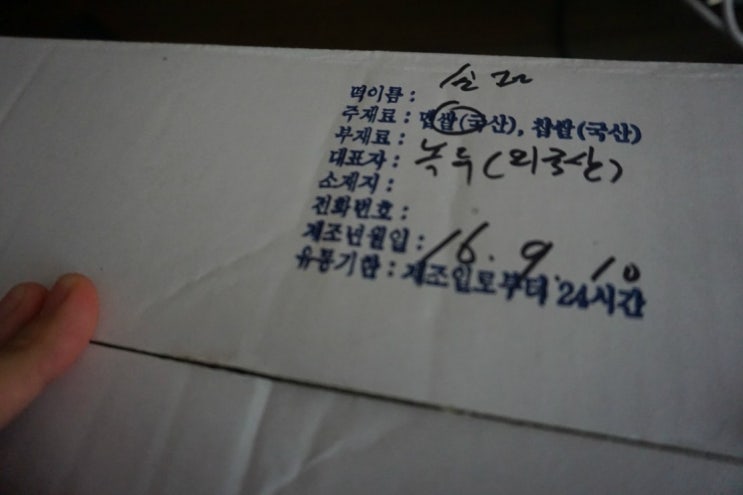 떡이름 : 송편
주재료 : 멥쌀(국산), 찹쌀(국산)
부재료 : 녹두(외국산)
대표자 :
소재지 :
전화번호 :
제조년월일 : 16. 9. 10
유통기한 : 제조일로부터 24시간